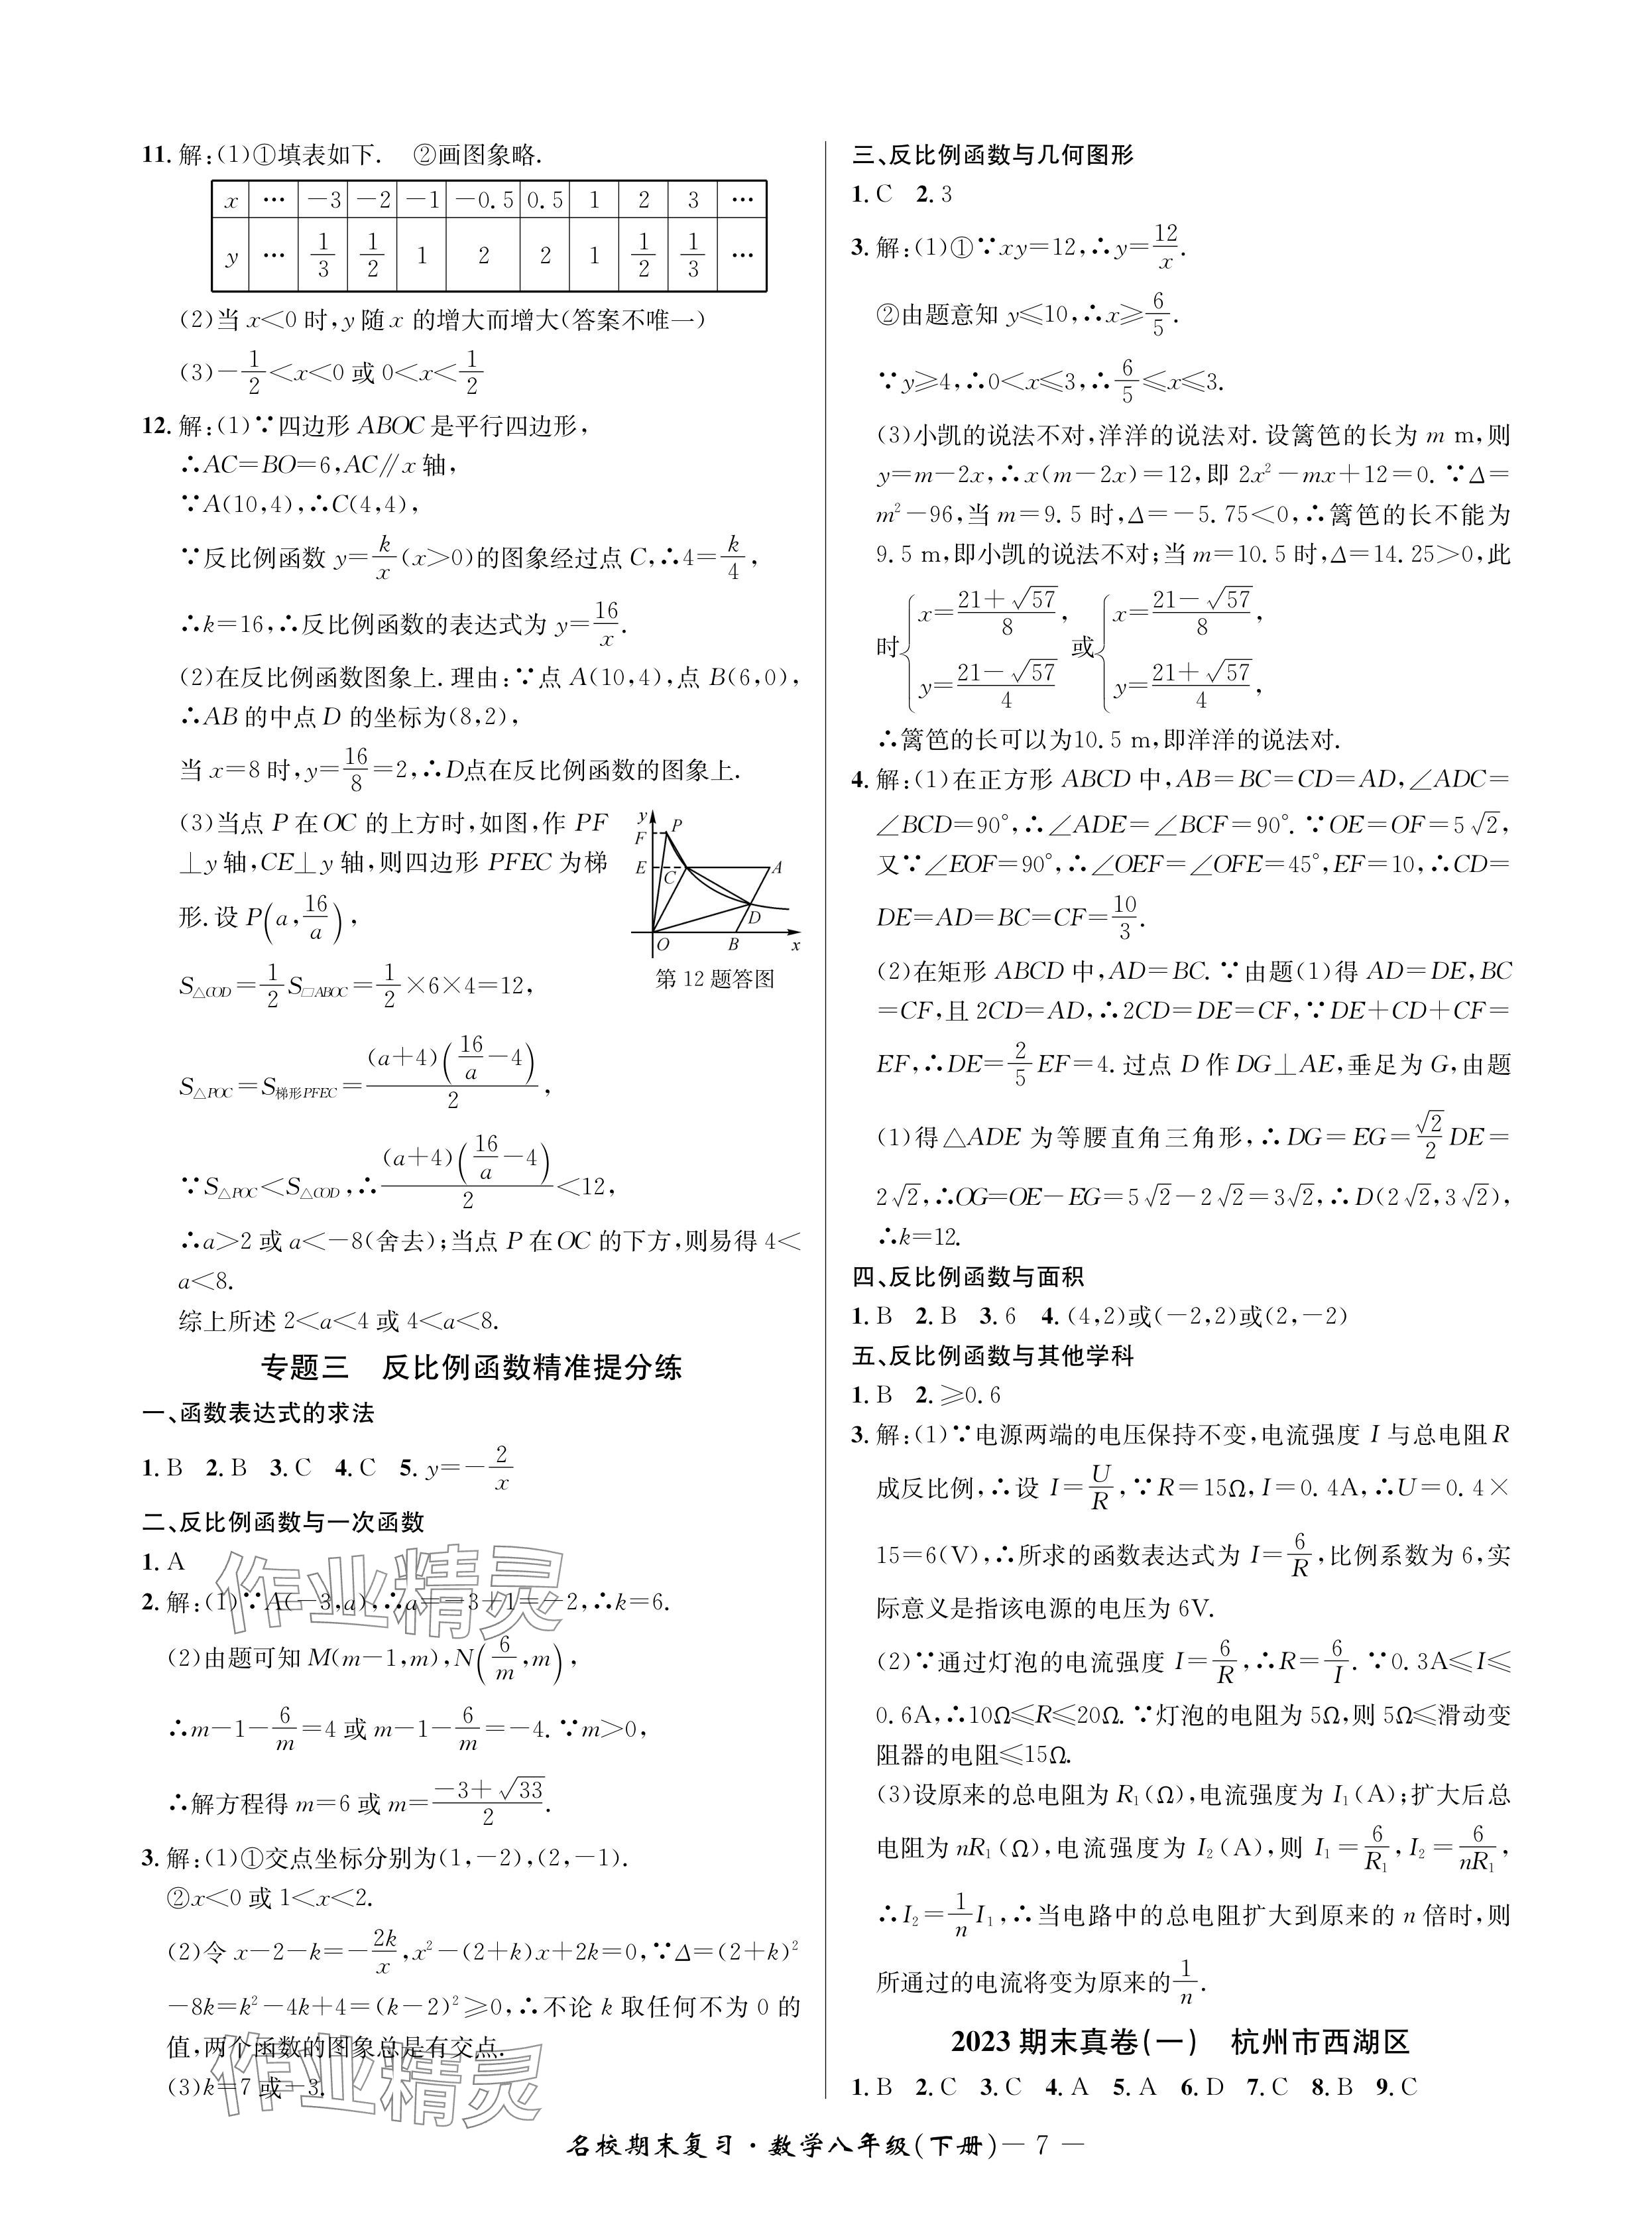 11. 解:(1)①填表如下. ②画图象略.
x … -3 -2 -1 -0.5 0.5 1 2 3 …
y … 1/3 1/2 1 2 2 1 1/2 1/3 …
(2)当 x<0 时,y 随 x 的增大而增大(答案不唯一)
(3)-1/2<x<0 或 0<x<1/2
12. 解:(1)∵四边形 ABOC 是平行四边形,
∴AC=BO=6,AC∥x 轴,
∵A(10,4),∴C(4,4),
∵反比例函数 y=k/x(x>0)的图象经过点 C,∴4=k/4,
∴k=16,∴反比例函数的表达式为 y=16/x.
(2)在反比例函数图象上. 理由:∵点 A(10,4),点 B(6,0),
∴AB 的中点 D 的坐标为(8,2),
当 x=8 时,y=16/8=2,∴D点在反比例函数的图象上.
(3)当点 P 在OC 的上方时,如图,作 PF
⊥y 轴,CE⊥y 轴,则四边形 PFEC 为梯
形. 设 P(a,16/a),
y F P E C A D O B x
第 12 题答图
S△COD=1/2 S□ABOC=1/2×6×4=12,
S△POC=S梯形PFEC=(a+4)(16/a-4)/2,
∵S△POC<S△COD,∴(a+4)(16/a-4)/2<12,
∴a>2 或 a<-8(舍去);当点 P 在OC 的下方,则易得 4<
a<8.
综上所述 2<a<4 或 4<a<8.
专题三 反比例函数精准提分练
一、函数表达式的求法
1. B 2. B 3. C 4. C 5. y=-2/x
二、反比例函数与一次函数
1. A
2. 解:(1)∵A(-3,a),∴a=-3+1=-2,∴k=6.
(2)由题可知 M(m-1,m),N(6/m,m),
∴m-1-6/m=4 或 m-1-6/m=-4. ∵m>0,
∴解方程得 m=6 或 m=(-3+√33)/2.
3. 解:(1)①交点坐标分别为(1,-2),(2,-1).
②x<0 或 1<x<2.
(2)令 x-2-k=-2k/x,x²-(2+k)x+2k=0,∵Δ=(2+k)²
-8k=k²-4k+4=(k-2)²≥0,∴不论 k 取任何不为 0 的
值,两个函数的图象总是有交点.
(3)k=7 或-3.
作业精灵
作业精灵
三、反比例函数与几何图形
1. C 2. 3
3. 解:(1)①∵xy=12,∴y=12/x.
②由题意知 y≤10,∴x≥6/5.
∵y≥4,∴0<x≤3,∴6/5≤x≤3.
(3)小凯的说法不对,洋洋的说法对. 设篱笆的长为 m m,则
y=m-2x,∴x(m-2x)=12,即 2x²-mx+12=0. ∵Δ=
m²-96,当 m=9.5 时,Δ=-5.75<0,∴篱笆的长不能为
9.5 m,即小凯的说法不对;当 m=10.5 时,Δ=14.25>0,此
时{x=(21+√57)/8, y=(21-√57)/4 或{x=(21-√57)/8, y=(21+√57)/4,
∴篱笆的长可以为10.5 m,即洋洋的说法对.
4. 解:(1)在正方形 ABCD 中,AB=BC=CD=AD,∠ADC=
∠BCD=90°,∴∠ADE=∠BCF=90°. ∵OE=OF=5√2,
又∵∠EOF=90°,∴∠OEF=∠OFE=45°,EF=10,∴CD=
DE=AD=BC=CF=10/3.
(2)在矩形 ABCD 中,AD=BC. ∵由题(1)得 AD=DE,BC
=CF,且 2CD=AD,∴2CD=DE=CF,∵DE+CD+CF=
EF,∴DE=2/5 EF=4. 过点 D 作 DG⊥AE,垂足为 G,由题
(1)得△ADE 为等腰直角三角形,∴DG=EG=√2/2 DE=
2√2,∴OG=OE-EG=5√2-2√2=3√2,∴D(2√2,3√2),
∴k=12.
四、反比例函数与面积
1. B 2. B 3. 6 4. (4,2)或(-2,2)或(2,-2)
五、反比例函数与其他学科
1. B 2. ≥0.6
3. 解:(1)∵电源两端的电压保持不变,电流强度 I 与总电阻 R
成反比例,∴设 I=U/R,∵R=15Ω,I=0.4A,∴U=0.4×
15=6(V),∴所求的函数表达式为 I=6/R,比例系数为 6,实
际意义是指该电源的电压为 6V.
(2)∵通过灯泡的电流强度 I=6/R,∴R=6/I. ∵0.3A≤I≤
0.6A,∴10Ω≤R≤20Ω. ∵灯泡的电阻为 5Ω,则 5Ω≤滑动变
阻器的电阻≤15Ω.
(3)设原来的总电阻为 R₁(Ω),电流强度为 I₁(A);扩大后总
电阻为 nR₁(Ω),电流强度为 I₂(A),则 I₁=6/R₁,I₂=6/nR₁,
∴I₂=1/n I₁,∴当电路中的总电阻扩大到原来的 n 倍时,则
所通过的电流将变为原来的1/n.
2023 期末真卷(一) 杭州市西湖区
1. B 2. C 3. C 4. A 5. A 6. D 7. C 8. B 9. C
名校期末复习·数学八年级(下册)— 7 —